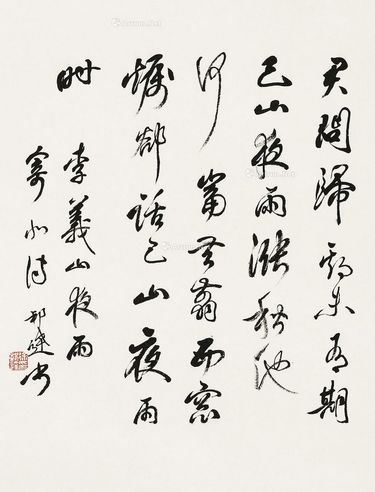 君問歸期未有期
巴山夜雨漲秋池
何當共翦西窗
燭卻話巴山夜雨
時
李義山夜雨
寄北詩